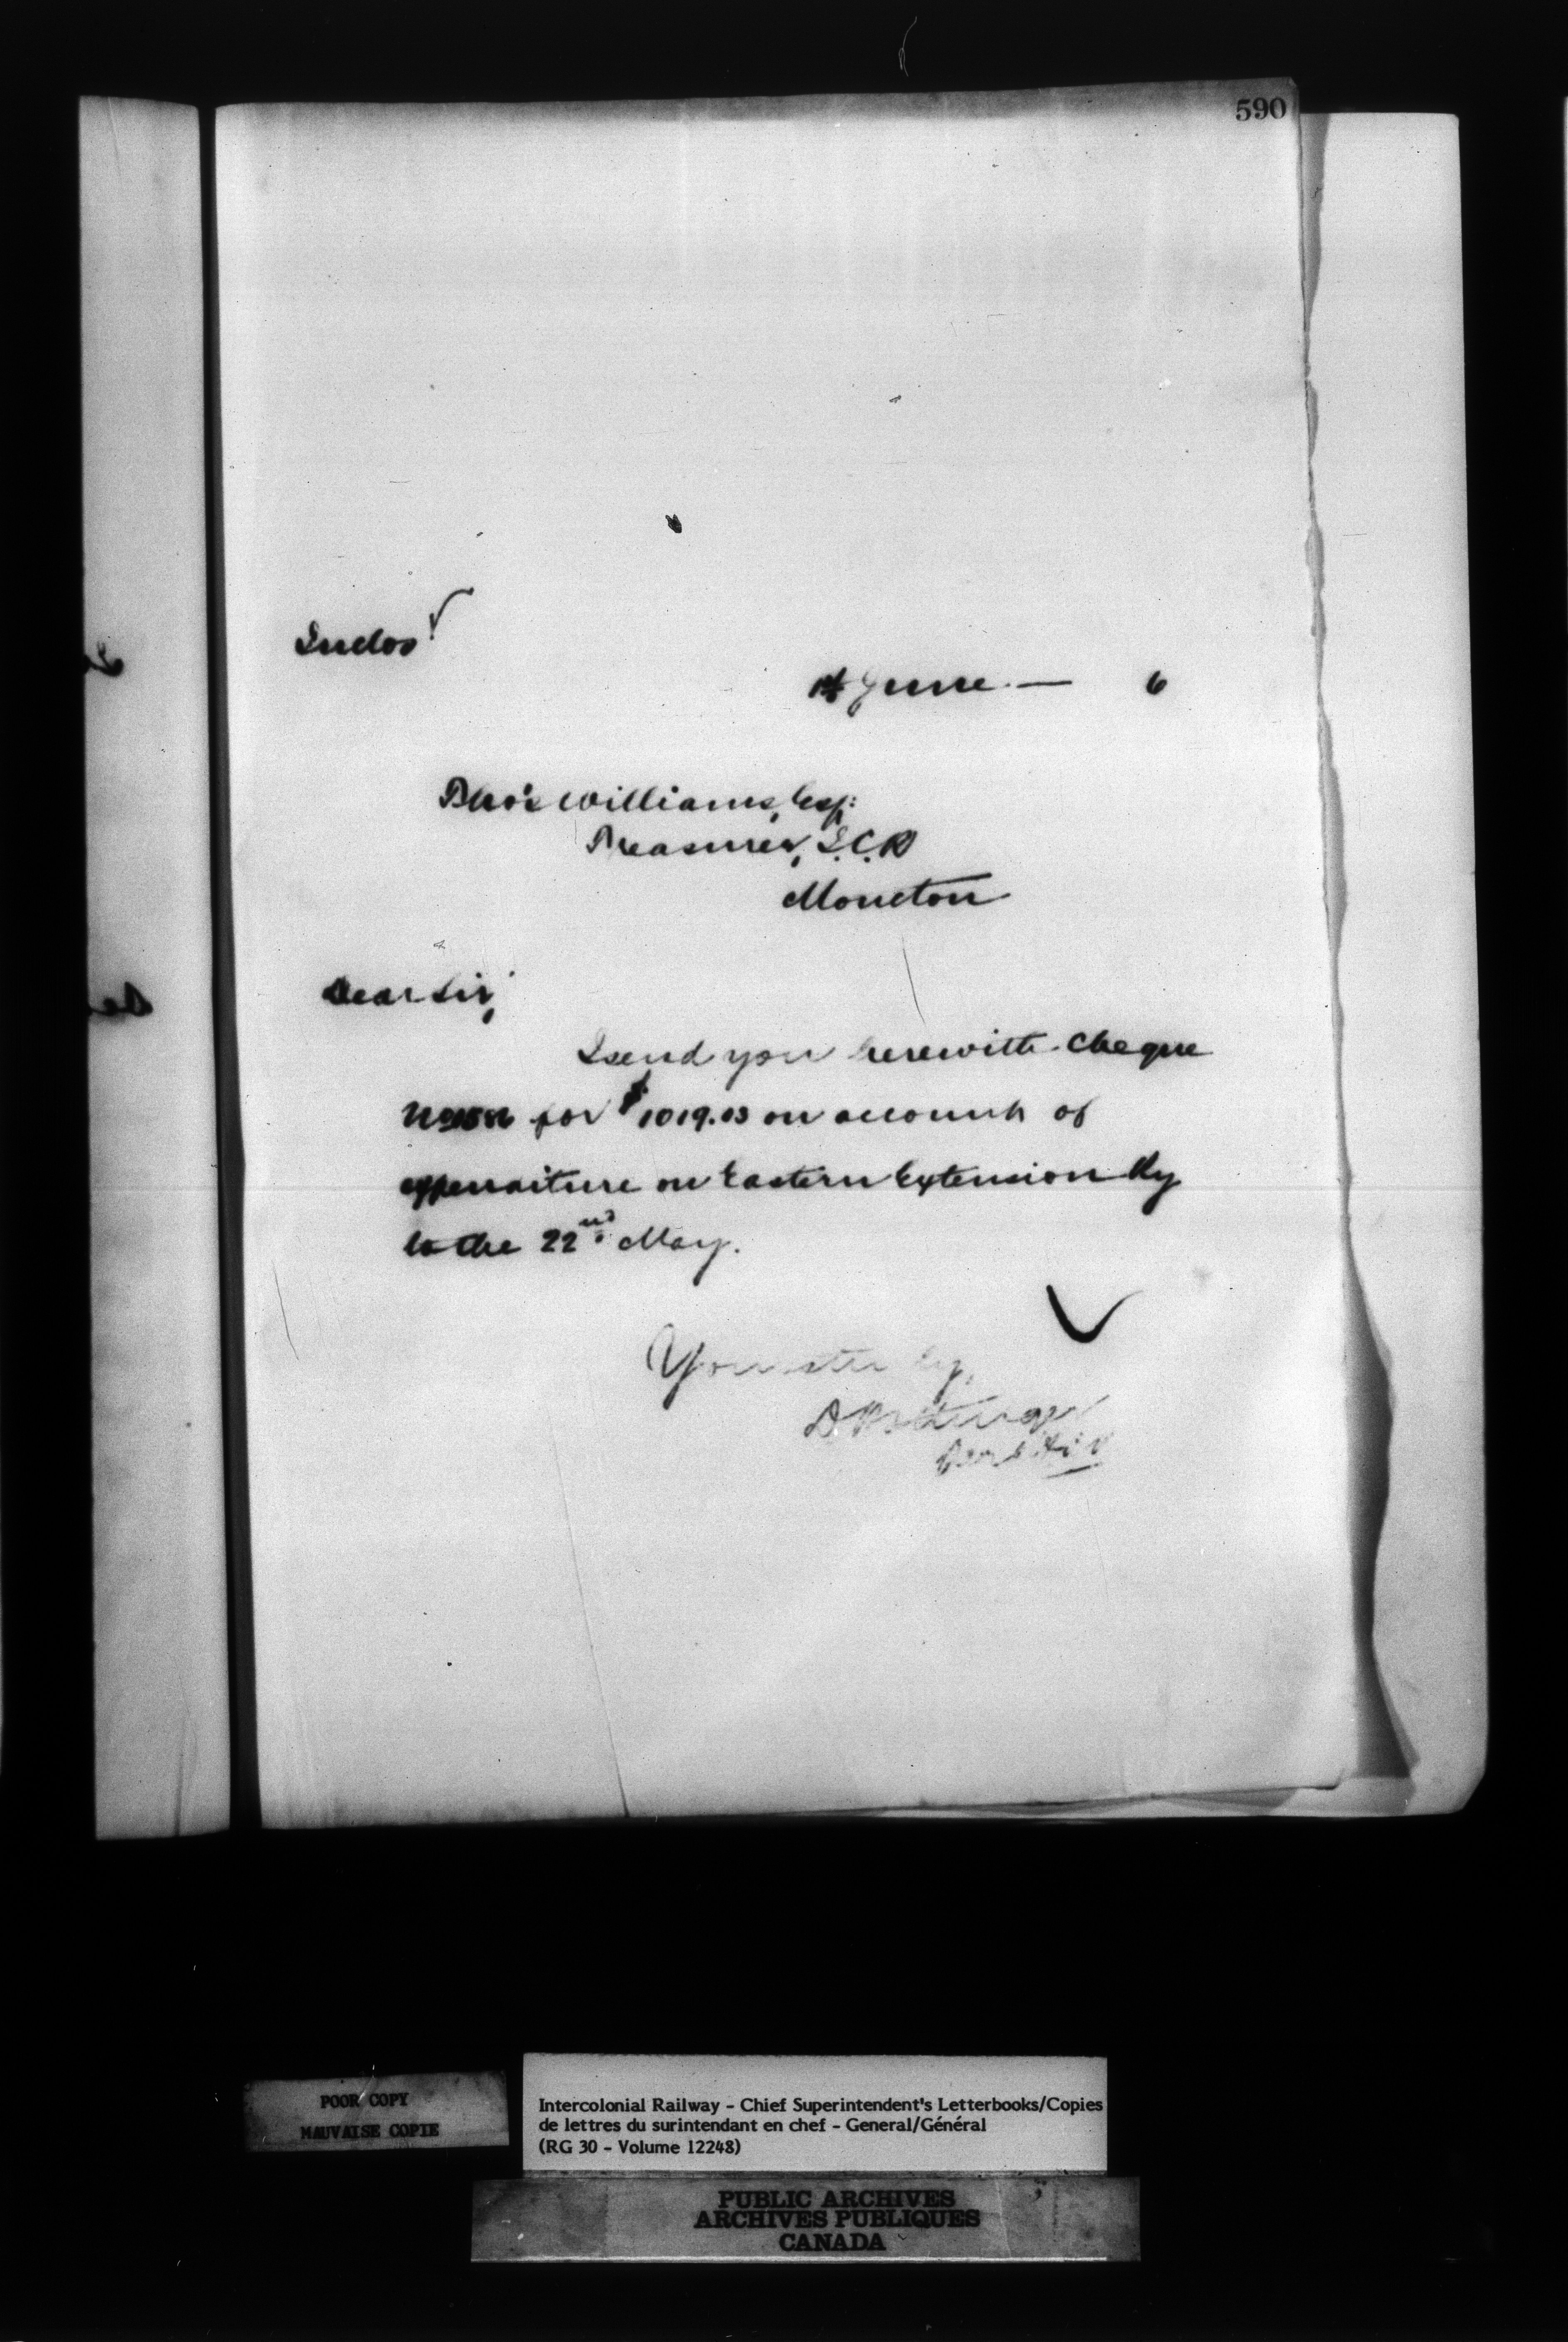 590
Inclos
1st June — 6
Tho's Williams, Esq:
Treasurer, I.C.R
Moncton
Dear Sir,
I send you herewith Cheque
No for $1019.03 on account of
expenditure on Eastern Extension Ry
to the 22nd May.
Yours truly,
D Pottinger
POOR COPY
MAUVAISE COPIE
Intercolonial Railway - Chief Superintendent's Letterbooks/Copies
de lettres du surintendant en chef - General/Général
(RG 30 - Volume 12248)
PUBLIC ARCHIVES
ARCHIVES PUBLIQUES
CANADA